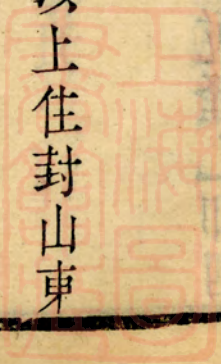 上住封山東